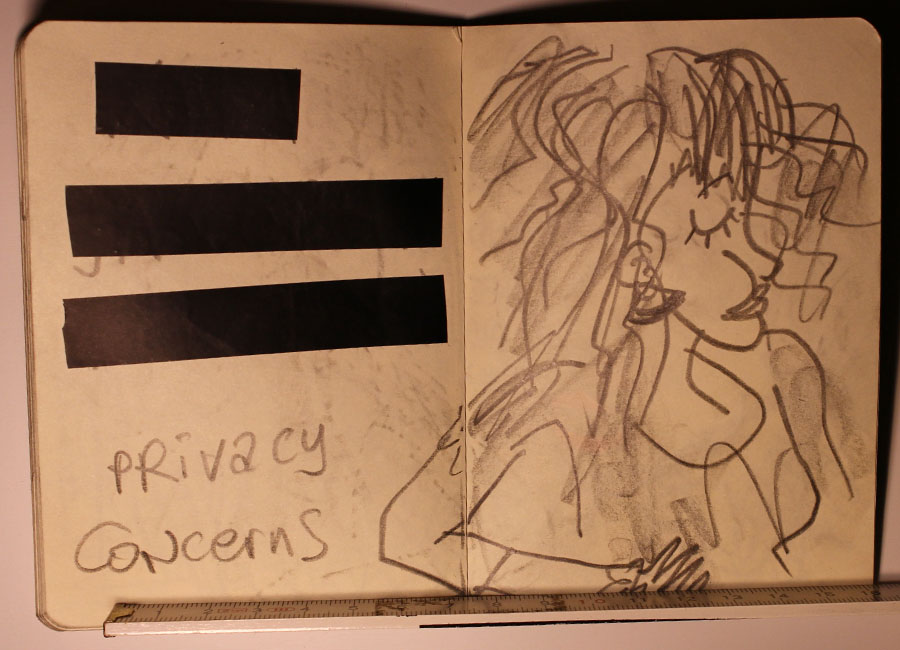 PRivacy
Concerns